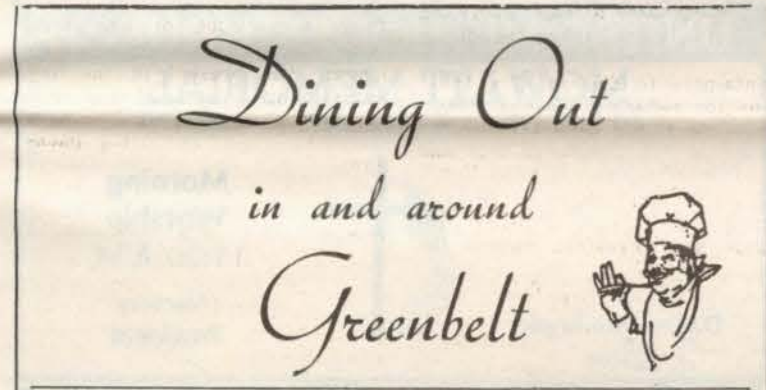 Dining Out
in and around
Greenbelt
Morning